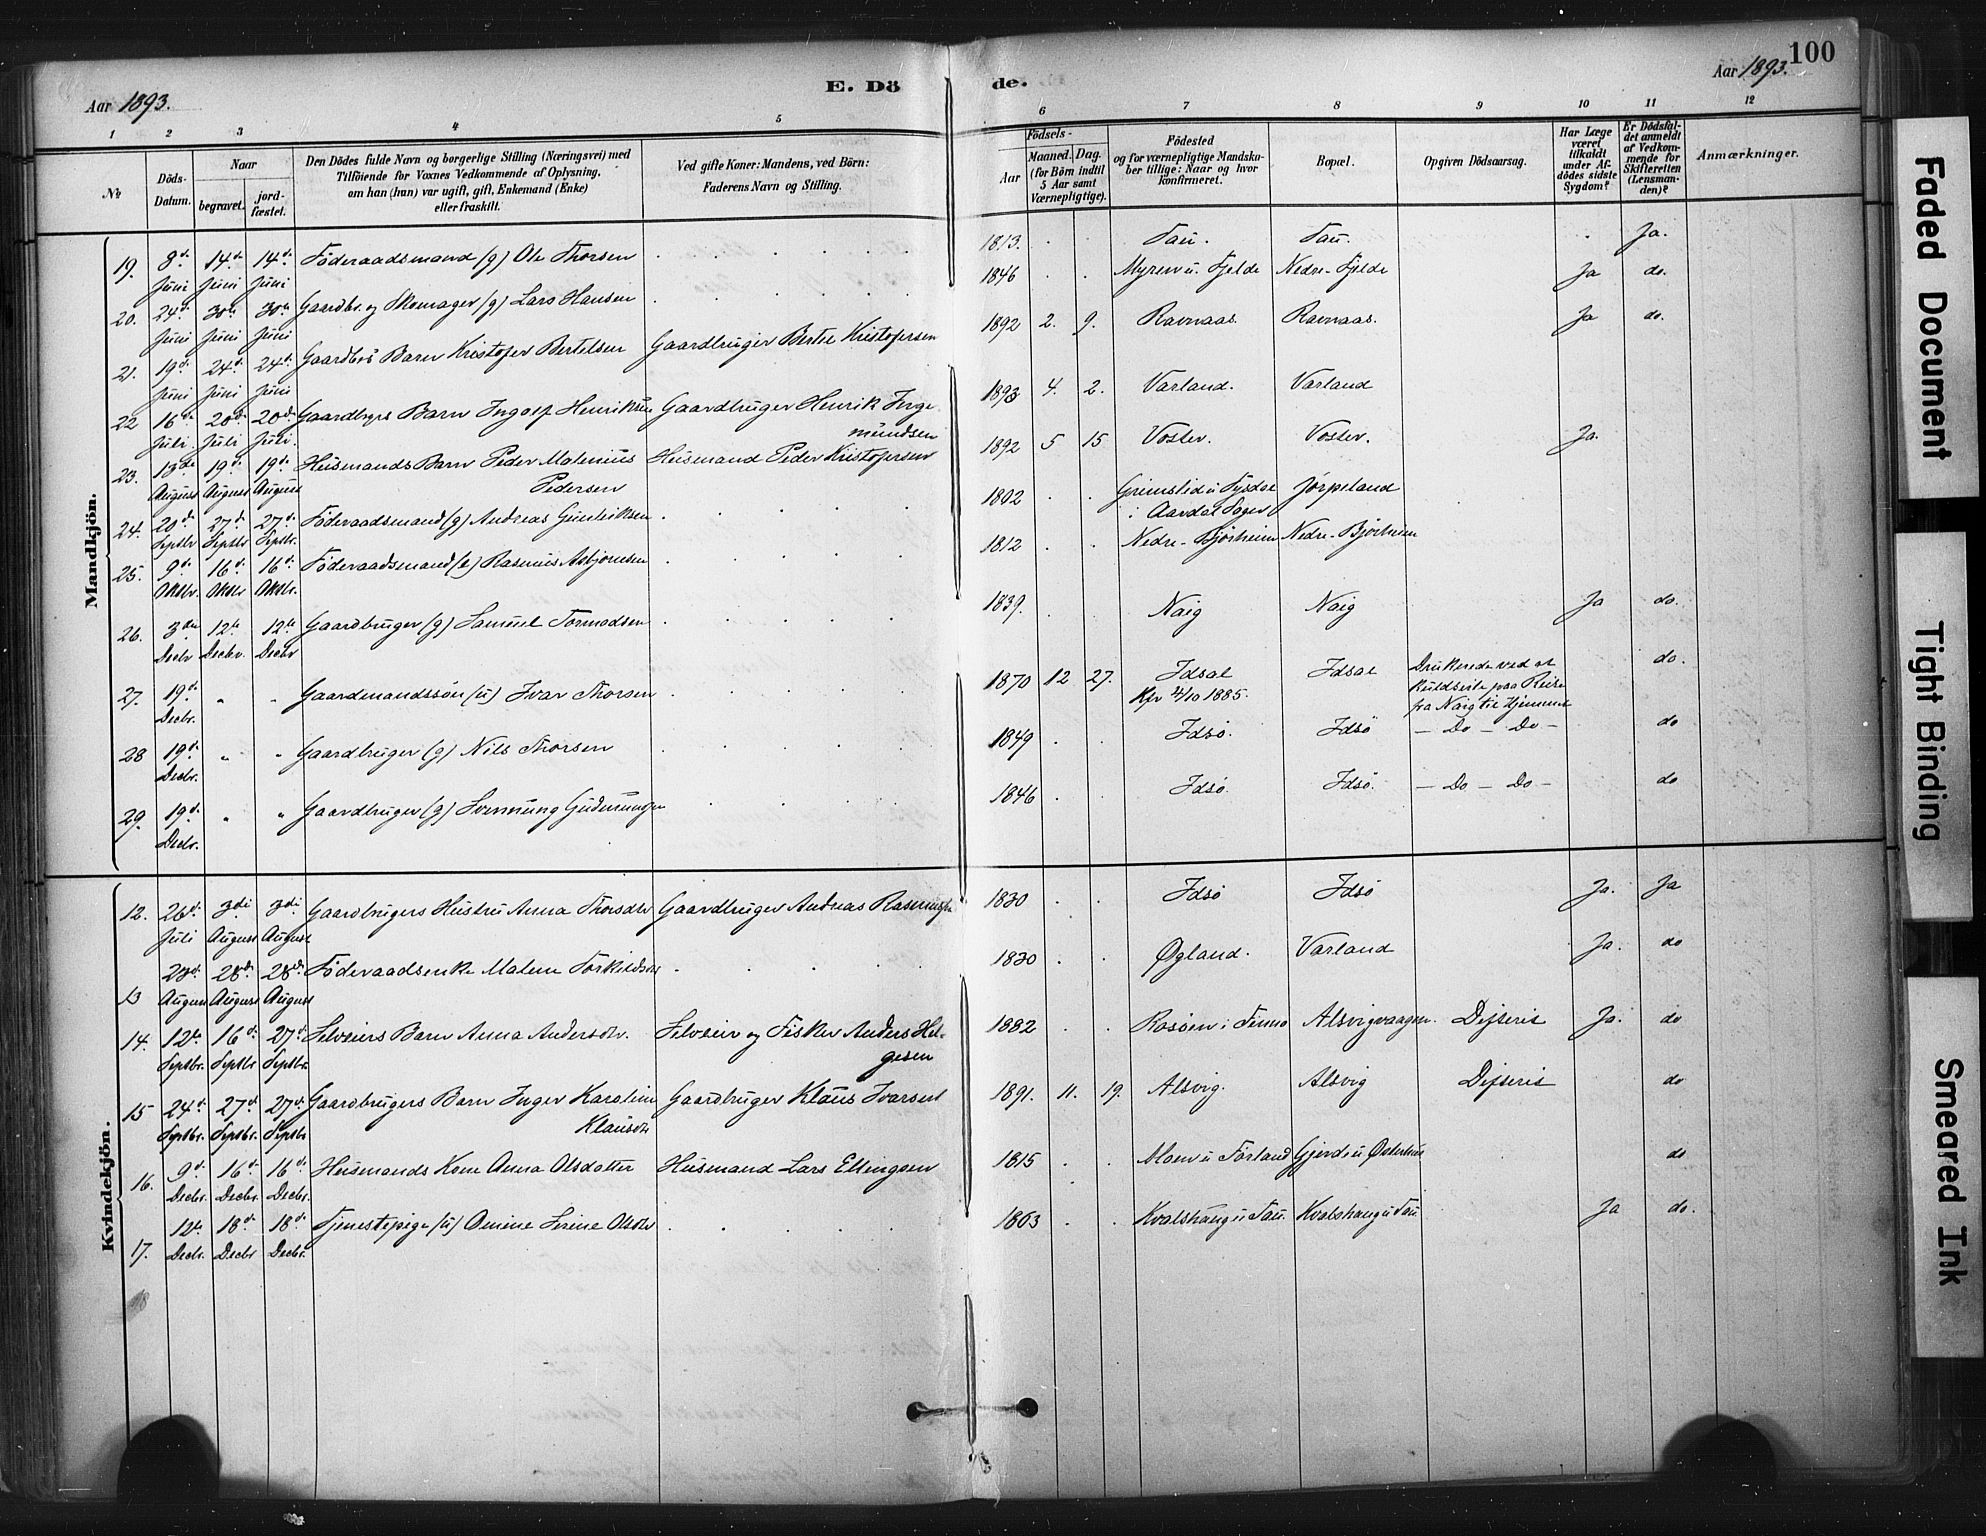 100
Aar 1893.
E. Dö
de.
Aar 1893.
1 2 3 4 5 6 7 8 9 10 11 12
№
Döds-
Datum.
Naar
begravet.
jord-
fæstet.
Den Dödes fulde Navn og borgerlige Stilling (Næringsvei) med
Tilföiende for Voxnes Vedkommende af Oplysning,
om han (hun) var ugift, gift, Enkemand (Enke)
eller fraskilt.
Ved gifte Koner: Mandens, ved Börn:
Faderens Navn og Stilling.
Födsels-
Aar
Maaned. Dag.
(for Börn indtil
5 Aar samt
Værnepligtige).
Födested
og for værnepligtige Mandska-
ber tillige: Naar og hvor
konfirmeret.
Bopæl.
Opgiven Dödsaarsag.
Har Læge
været
tilkaldt
under Af-
dödes sidste
Sygdom?
Er Dödsfal-
det anmeldt
af Vedkom-
mende for
Skifteretten
(Lensman-
den)?
Anmærkninger.
Mandkjön.
19. 8de Juni 14de Juni 14de Juni Föderaadsmand (g) Ole Thorsen 1813. Tau. Tau. Ja.
20. 24de Juni 30te Juni 30te Juni Gaardbr. og Skomager (g) Lars Hansen 1846 Myren u. Fjelde Nedre-Fjelde Ja do.
21. 19de Juni 24de Juni 24de Juni Gaardbrs Barn Kristofer Bertelsen Gaardbruger Bertel Kristofersen 1892 2. 9. Ravnaas. Ravnaas. Ja do.
22 16de Juli. 20de Juli 20de Juli. Gaardbrgs Barn Ingolf Henriksen Gaardbruger Henrik Inge-
mundsen 1893 4. 2. Varland. Varland
23. 13de August 19de August 19de August Husmands Barn Peder Malenius
Pedersen Husmand Peder Kristofersen 1892 5 15 Voster. Voster. Ja.
24. 20de Septbr 27de Septbr 27de Septbr. Föderaadsmand (g) Andreas Gunleiksen 1802 Grimslid u Tysdal
i Aardal Sogn Jørpeland
25. 9de Oktbr. 16de Oktbr 16de Oktbr. Föderaadsmand (e) Rasmus Asbjørnsen 1812 Nedre-Bjørheim Nedre-Bjørheim
26. 3die Decbr 12te Decbr. 12te Decbr Gaardbruger (g) Samuel Tormodsen 1839. Naig Naig Ja do.
27. 19de Decbr. " " Gaardmandssøn (u) Ivar Thorsen 1870 12 27. Idsal
Kfr 4/10 1885. Idsal Druknede ved at
kuldseile paa Reise
fra Naig til Hjemmet do.
28 19de Decbr. " " Gaardbruger (g) Nils Thorsen 1849 Idsö. Idsö – Do – Do – do
29. 19de Decbr. " " Gaardbruger (g) Svennung Gudmundsen 1846 Idsö. Idsö. – Do – Do – do
Kvindekjön.
12. 26de Juli 3die August 3die August Gaardbrugers Hustru Anna Thorsdtr Gaardbruger Andreas Rasmussen 1830 Idsö Idsö Ja. Ja
13 23de August 28de August 28de August Föderaadsenke Malene Torkildsdtr 1830 Øgland. Varland Ja. do
14. 12te Septbr. 16de Septbr 27de Septbr. Selveiers Barn Anna Andersdtr. Selveier og Fisker Anders Hel-
gesen 1882 Rosøen i Finnø Alsvigvaagen. Difteris Ja. do
15 24de Septbr. 27de Septbr. 27de Septbr Gaardbrugers Barn Inger Karoline
Klausdtr Gaardbruger Klaus Ivarsen 1891. 11. 19. Alsvig. Alsvig Difteris do
16. 9de Decbr. 16de Decbr. 16de Decbr. Husmands Kone Anna Olsdatter Husmand Lars Ellingsen 1815 Moen u Forland Gjerde u Østerhus do
17. 12te Decbr. 18de Decbr 18de Decbr. Tjenestepige (u) Omine Serine Olsdtr 1863 Kvalshaug u Tau. Kvalshaug u Tau Ja do.
Faded Document
Tight Binding
Smeared Ink